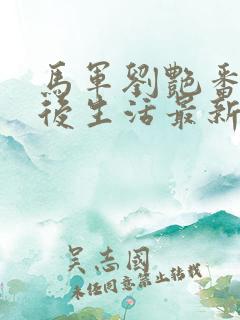 馬軍劉艷番
後生活最新
吴志國
未經同意禁止轉載